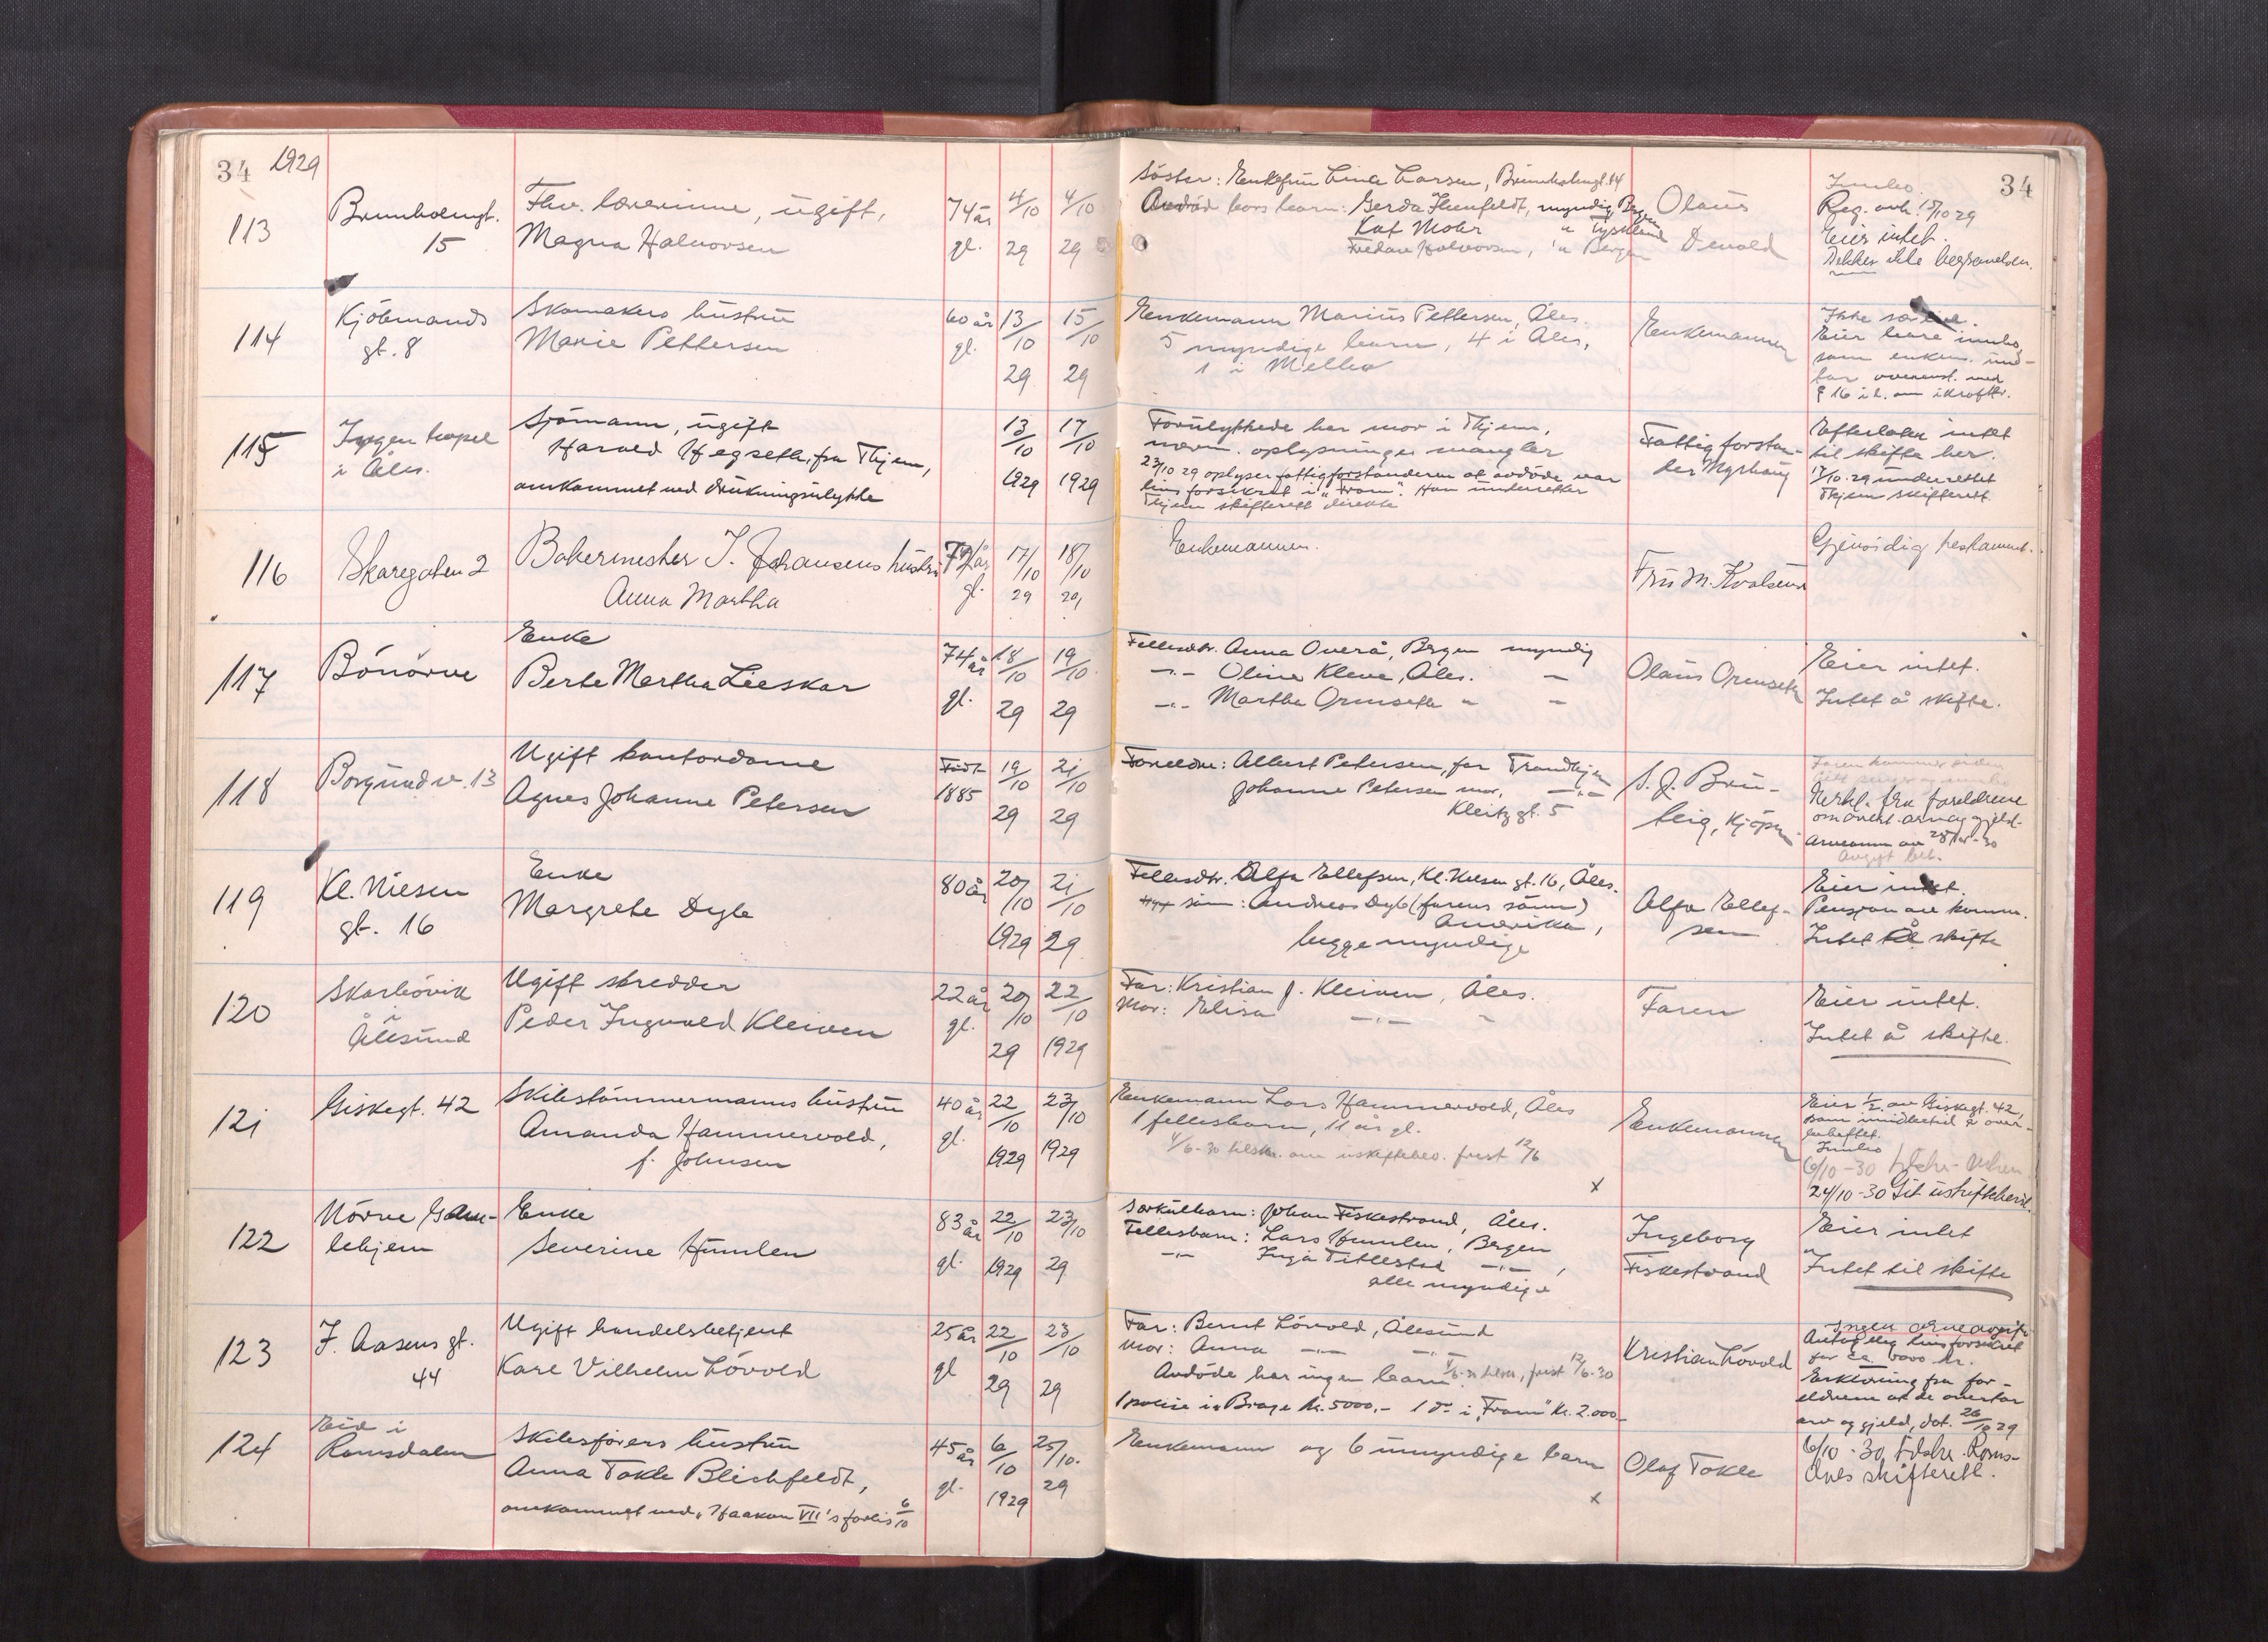 34 1929
34
113
Brunholmgt.
15
Fhv. lærerinne, ugift,
Magna Halvorsen
74 år
gl.
4/10
29
4/10
29
Søster: Enkefru Lina Larsen, Brunholmgt. 14
Avdød brors barn: Gerda Hunfeldt, myndig, Bergen
Kat Mohr " Tyskland
Fredare Halvorsen, " Bergen
Olaus
Devold
Innbo.
Reg. avh. 15/10 29
Eier intet.
Dekker ikke begravelsen.
114
Kjöbmands
gt. 8
Skomakers hustru
Marie Pettersen
60 år
gl.
13/10
29
15/10
29
Enkemann Marius Pettersen, Ales.
5 myndige barn, 4 i Ales,
1 i Melbo
Enkemannen
Ikke særeie.
Eier bare innbo,
som enkem. und-
tar overenst. med
§ 16 i l. om ikrafttr.
115
Ingen bopel
i Åles.
Sjömann, ugift
Harald Hegseth, fra Thjem,
omkommet ved drukningsulykke
13/10
1929
17/10
1929
Forulykkede har mor i Thjem,
nærm. oplysninger mangler
23/10 29 oplyser fattigforstanderen at avdöde var
livsforsikret i "Fram". Han underretter
Thjem skifterett direkte
Fattigforstan-
der Myrhaug
Efterlater intet
til skifte her.
17/10-29 underrettet
Thjem skifterett
116
Skaregaten 2
Bakermester J. Johansens hustru
Anna Martha
79 år
gl.
17/10
29
18/10
29
Enkemannen.
Fru M. Kvalsund
Gjensidig testament.
117
Bönörve
Enke
Berte Martha Lieskar
74 år
gl.
18/10
29
19/10
29
Fellesdtr. Anna Overå, Bergen myndig
-"- Oline Kleve, Ales. -
-"- Martha Ormseth " -
Olaus Ormseth
Eier intet.
Intet å skifte.
118
Borgundv. 13
Ugift kontordame
Agnes Johanne Petersen
Född
1885
19/10
29
21/10
29
Foreldre: Albert Petersen, far Trondhjem
Johanne Petersen mor, -"-
Kleitz gt. 5
S. J. Brü-
beig, Kjöpm.
Faren kommer siden
Erkl. fra foreldrene
om overt. arv og gjeld.
Avgift bet.
119
Kl. Niesen
gt. 16
Enke
Margrete Dyb
80 år
20/10
1929
21/10
29
Fellesdtr. Alfa Ellefsen, Kl. Nielsen gt. 16, Åles.
sønn: Andreas Dyb (farens sönn)
Amerika,
begge myndige
Alfa Ellef-
sen
Eier intet.
Pensjon av komm.
Intet til skifte
120
Skarbövik
i
Ålesund
Ugift skredder
Peder Ingvald Kleiven
22 år
gl.
20/10
29
22/10
1929
Far: Kristian J. Kleiven, Åles.
Mor: Elisa -"- "
Faren
Eier intet.
Intet å skifte.
121
Giskegt. 42
Skibstömmermanns hustru
Amanda Hammervold,
f. Johnsen
40 år
gl.
22/10
1929
23/10
1929
Enkemann Lars Hammervold, Åles
1 fellesbarn, 11 år gl.
4/6-30 tilskr. om uskiftebev. frist 12/6
x
Enkemannen
Eier 1/2 av Giskegt. 42,
som imidlertid er over-
beheftet.
Innbo
6/10-30 tilskr.
24/10-30 Git uskiftebevil.
122
Nörve Gam-
lehjem
Enke
Severine Humlen
83 år
gl.
22/10
1929
23/10
29
Særkulbarn: Johan Fiskestrand, Åles.
Fellesbarn: Lars Humlen, Bergen
-"- Inga Titlestad -"-,
alle myndige
Ingeborg
Fiskestrand
Eier intet
Intet til skifte
123
I. Aasens gt.
44
Ugift handelsbetjent
Kare Vilhelm Lövold
25 år
gl
22/10
29
23/10
29
Far: Bernt Lövold, Ålesund
Mor: Anna -"- -"-
Avdöde har ingen barn. 4/6-30 tilskr., frist 12/6-30
1 polise i "Brage" kr. 5000,- 1 do i "Fram" kr. 2.000,-
Kristian Lövold
Ingen arveavgift
Antagelig livsforsikret
for ca. 6000 kr.
Erklæring fra for-
eldrene at de overtar
arv og gjeld, dat. 26/10 29
124
Eid i
Romsdalen
Skibsförers hustru
Anna Tokle Blichfeldt,
omkommet ved "Haakon VII"s forlis 6/10
45 år
gl.
6/10
1929
25/10.
29
Enkemann og 6 umyndige barn
x
Olaf Tokle
6/10-30 tilskr. Roms-
dals skifterett.